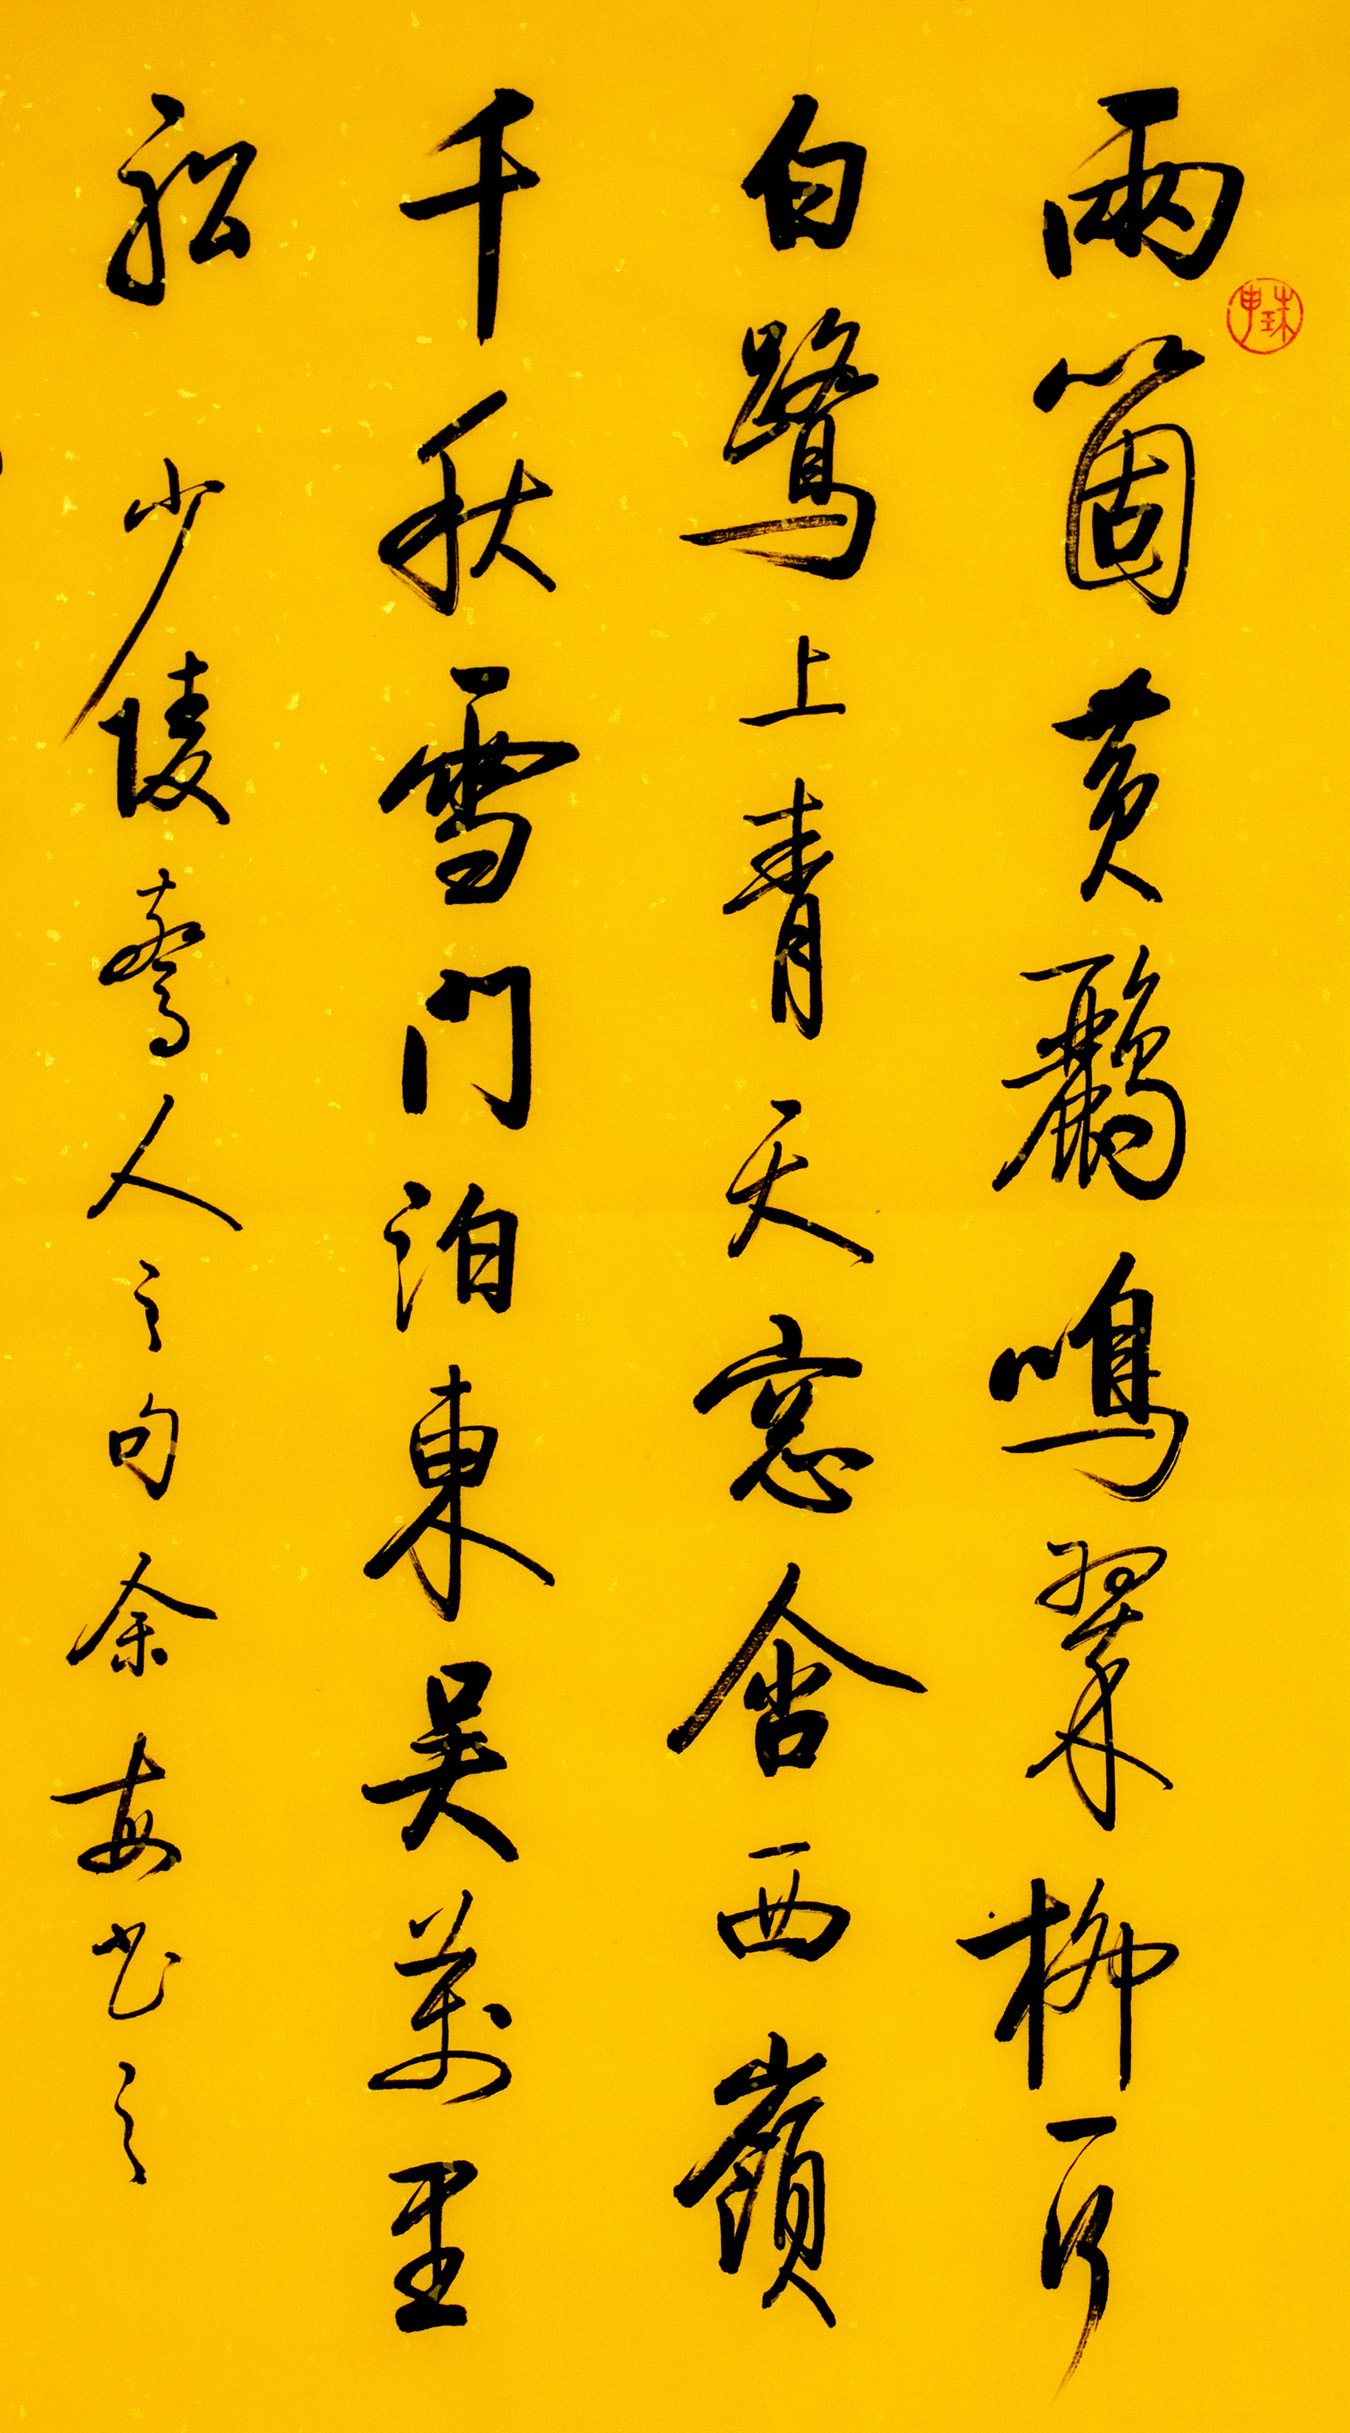 兩箇黄鸝鳴翠柳一行
白鷺上青天窓含西嶺
千秋雪門泊東吴萬里
船 少陵驚人之句余每書之